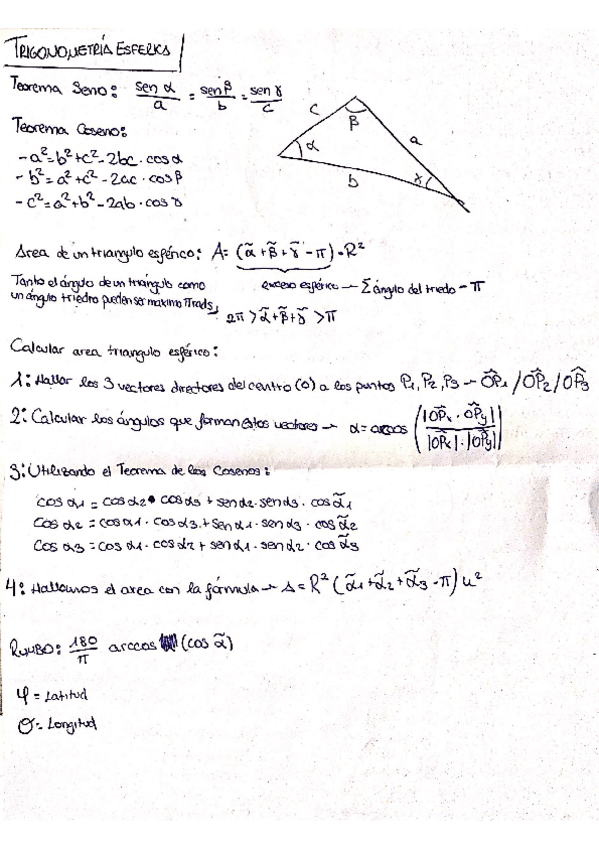 TRIGONOMETRÍA ESFERICA
Teorema Seno: sen α / a = sen β / b = sen γ / c
Teorema Coseno:
- a² = b² + c² - 2bc · cos α
- b² = a² + c² - 2ac · cos β
- c² = a² + b² - 2ab · cos γ
c β a α b γ
Area de un triangulo esférico: A = (α̃ + β̃ + γ̃ - π) · R²
Tanto el ángulo de un triángulo como
un ángulo triedro pueden ser maximo π rads,
exceso esférico → Σ ángulo del triedo - π
2π > α̃ + β̃ + γ̃ > π
Calcular area triangulo esférico:
1: Hallar los 3 vectores directores del centro (O) a los puntos P₁, P₂, P₃ → OP₁ / OP₂ / OP₃
2: Calcular los ángulos que forman estos vectores → α = arcos (|OPₓ · OPy| / |OPₓ| · |OPy|)
3: Utilizando el Teorema de los Cosenos:
cos α₁ = cos α₂ · cos α₃ + sen α₂ · sen α₃ · cos α̃₁
cos α₂ = cos α₁ · cos α₃ + sen α₁ · sen α₃ · cos α̃₂
cos α₃ = cos α₁ · cos α₂ + sen α₁ · sen α₂ · cos α̃₃
4: Hallamos el area con la fórmula → A = R² (α̃₁ + α̃₂ + α̃₃ - π) u²
RUMBO: 180/π arccos (cos α̃)
φ = Latitud
σ = Longitud